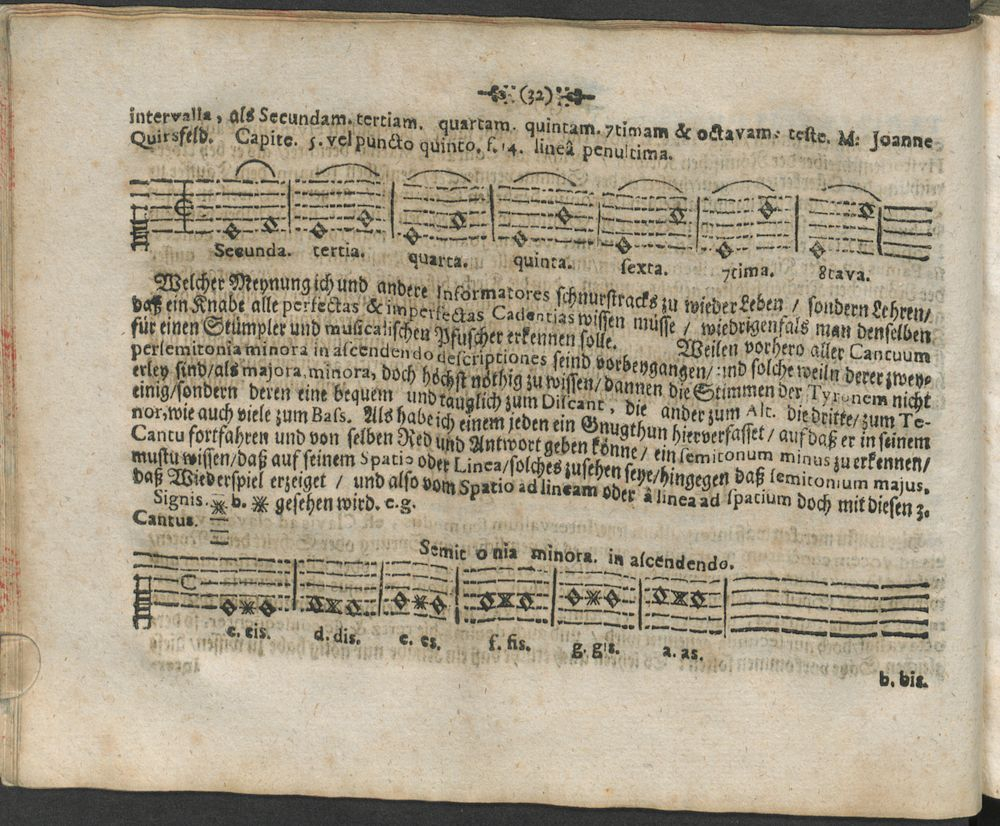 (32)
intervalla, als Secundam. tertiam. quartam. quintam. 7timam & octavam: teste. M: Joanne
Quirsfeld. Capite. 5. vel puncto quinto. f. 14. lineâ penultima.
Secunda. tertia. quarta. quinta. sexta. 7tima. 8tava.
Welcher Meynung ich und andere Informatores schnurstracks zu wieder Leben / sondern Lehren/
daß ein Knabe alle perfectas & imperfectas Cadentias wissen müsse / wiedrigenfals man denselben
für einen Stümpler und musicalischen Pfuscher erkennen solle. Weilen vorhero aller Cantuum
persemitonia minora in ascendendo descriptiones seind vorbeygangen/ und solche weiln derer zwey-
erley sind/als majora, minora, doch höchst nöthig zu wissen/ dannen die Stimmen der Tyronem nicht
einig/sondern deren eine bequem und tauglich zum Discant, die ander zum Alt. die dritte/ zum Te-
nor, wie auch viele zum Bass. Als habe ich einem jeden ein Gnugthun hierverfasset / auf daß er in seinem
Cantu fortfahren und von selben Red und Antwort geben könne / ein semitonum minus zu erkennen/
mustu wissen/daß auf seinem Spatio oder Linea/solches zusehen seye/hingegen daß semitonium majus,
daß Wiederspiel erzeiget / und also vom Spatio ad lineam oder â linea ad spatium doch mit diesen 2.
Signis. ※ b. ※ gesehen wird. e.g.
Cantus.
Semitonia minora. in ascendendo.
c. cis. d. dis. e. es. f. fis. g. gis. a. as.
b. bis.